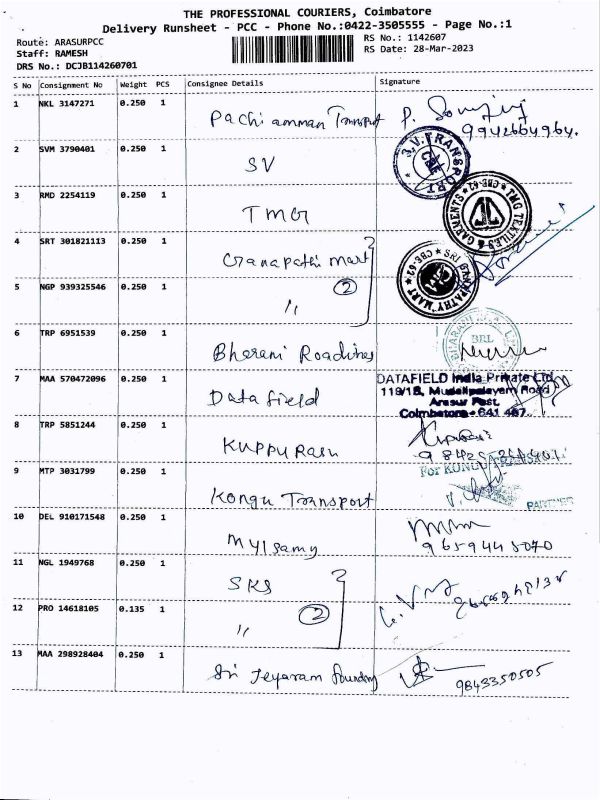 THE PROFESSIONAL COURIERS, Coimbatore
Delivery Runsheet - PCC - Phone No.:0422-3505555 - Page No.:1
Route: ARASURPCC
Staff: RAMESH
DRS No.: DCJB114260701
RS No.: 1142607
RS Date: 28-Mar-2023
S No Consignment No Weight PCS Consignee Details Signature
1 NKL 3147271 0.250 1 Pachiamman Transport
9942664964.
2 SVM 3790401 0.250 1 SV
S.V. TRANSPORT CBE
3 RMD 2254119 0.250 1 TMG
TMG TEXTILES & GARMENTS CBE-62
4 SRT 301821113 0.250 1 Ganapathi Mart
SRI GANAPATHY MART CBE-62
5 NGP 939325546 0.250 1 " 2
6 TRP 6951539 0.250 1 Bharani Roadlines
BRL
7 MAA 570472096 0.250 1 Data field
DATAFIELD India Private Ltd
118/1B, Mudalipalayam Road
Arasur Post.
Coimbatore - 641 407.
8 TRP 5851244 0.250 1 KUPPURASU
9 MTP 3031799 0.250 1 Kongu Transport
For KONGU TRANSPORT
PARTNER
10 DEL 910171548 0.250 1 Mylsamy
9659445070
11 NGL 1949768 0.250 1 SKS
12 PRO 14618105 0.135 1 " 2
13 MAA 298928404 0.250 1 Sri Jeyaram foundry
9843350505